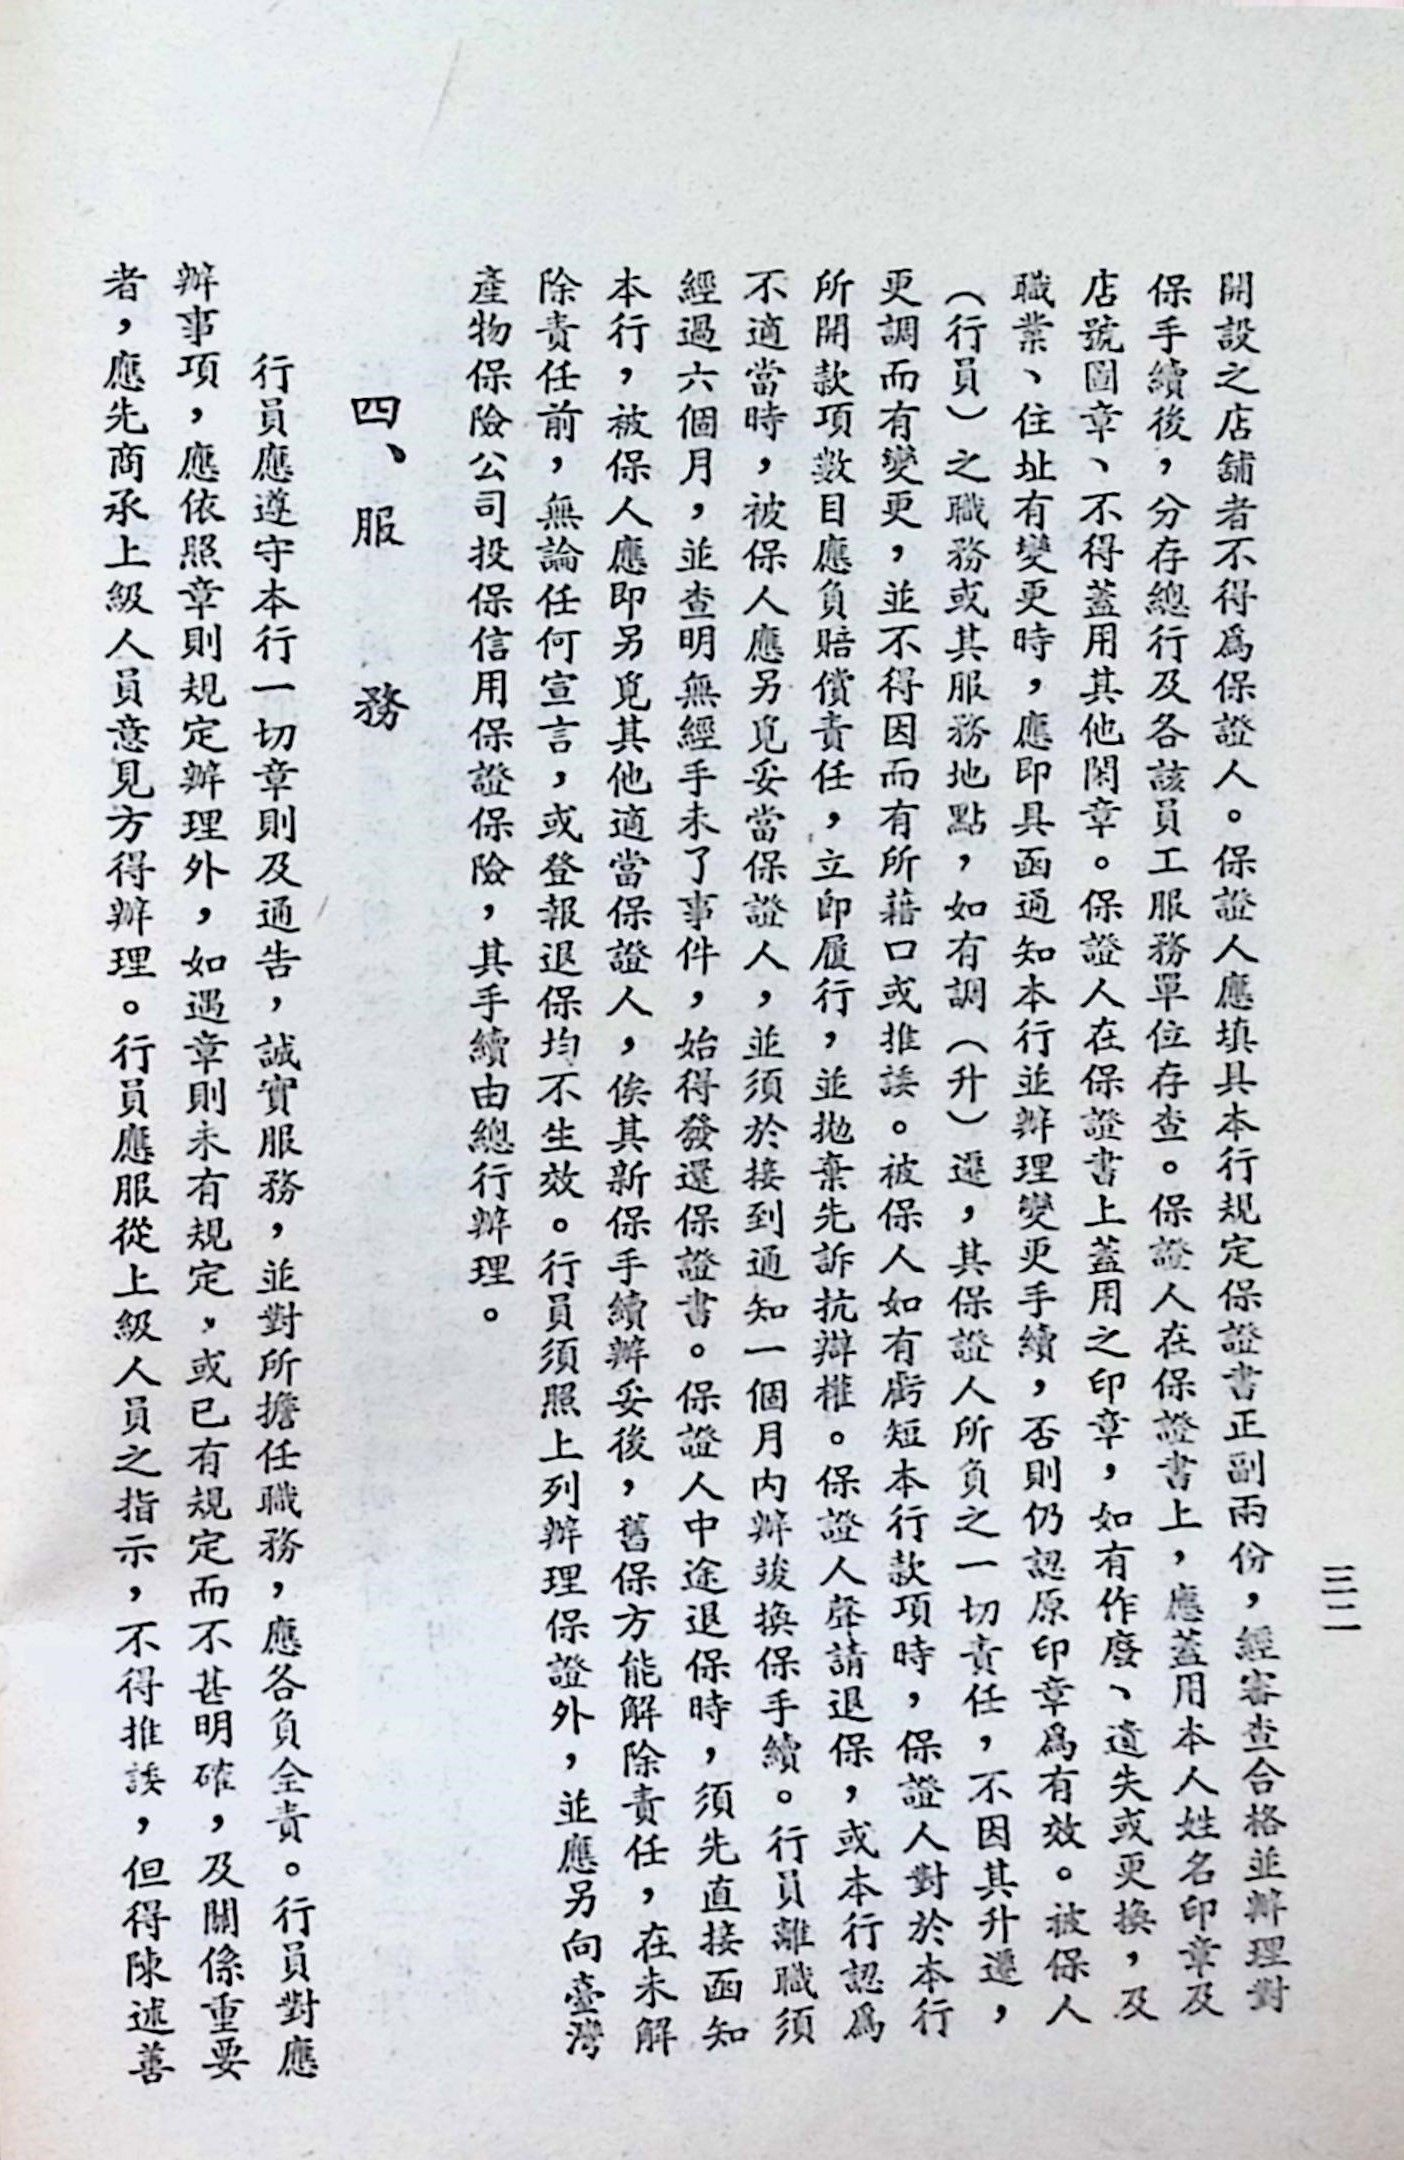 三二
開設之店舖者不得為保證人。保證人應填具本行規定保證書正副兩份，經審查合格並辦理對
保手續後，分存總行及各該員工服務單位存查。保證人在保證書上，應蓋用本人姓名印章及
店號圖章、不得蓋用其他閑章。保證人在保證書上蓋用之印章，如有作廢、遺失或更換，及
職業、住址有變更時，應即具函通知本行並辦理變更手續，否則仍認原印章為有效。被保人
（行員）之職務或其服務地點，如有調（升）遷，其保證人所負之一切責任，不因其升遷，
更調而有變更，並不得因而有所藉口或推諉。被保人如有虧短本行款項時，保證人對於本行
所開款項數目應負賠償責任，立即履行，並拋棄先訴抗辯權。保證人聲請退保，或本行認為
不適當時，被保人應另覓妥當保證人，並須於接到通知一個月內辦竣換保手續。行員離職須
經過六個月，並查明無經手未了事件，始得發還保證書。保證人中途退保時，須先直接函知
本行，被保人應即另覓其他適當保證人，俟其新保手續辦妥後，舊保方能解除責任，在未解
除責任前，無論任何宣言，或登報退保均不生效。行員須照上列辦理保證外，並應另向臺灣
產物保險公司投保信用保證保險，其手續由總行辦理。
四、服務
行員應遵守本行一切章則及通告，誠實服務，並對所擔任職務，應各負全責。行員對應
辦事項，應依照章則規定辦理外，如遇章則未有規定，或已有規定而不甚明確，及關係重要
者，應先商承上級人員意見方得辦理。行員應服從上級人員之指示，不得推諉，但得陳述善